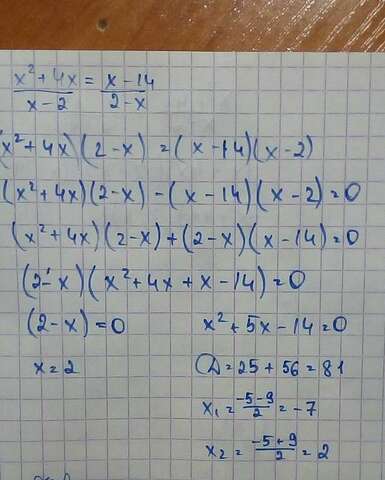 x²+4x/x-2 = x-14/2-x
(x²+4x)(2-x) =(x-14)(x-2)
(x²+4x)(2-x) -(x-14)(x-2)=0
(x²+4x)(2-x)+(2-x)(x-14)=0
(2-x)(x²+4x+x-14)=0
(2-x)=0 x²+5x-14=0
x=2 D=25+56=81
x₁=-5-9/2=-7
x₂=-5+9/2=2